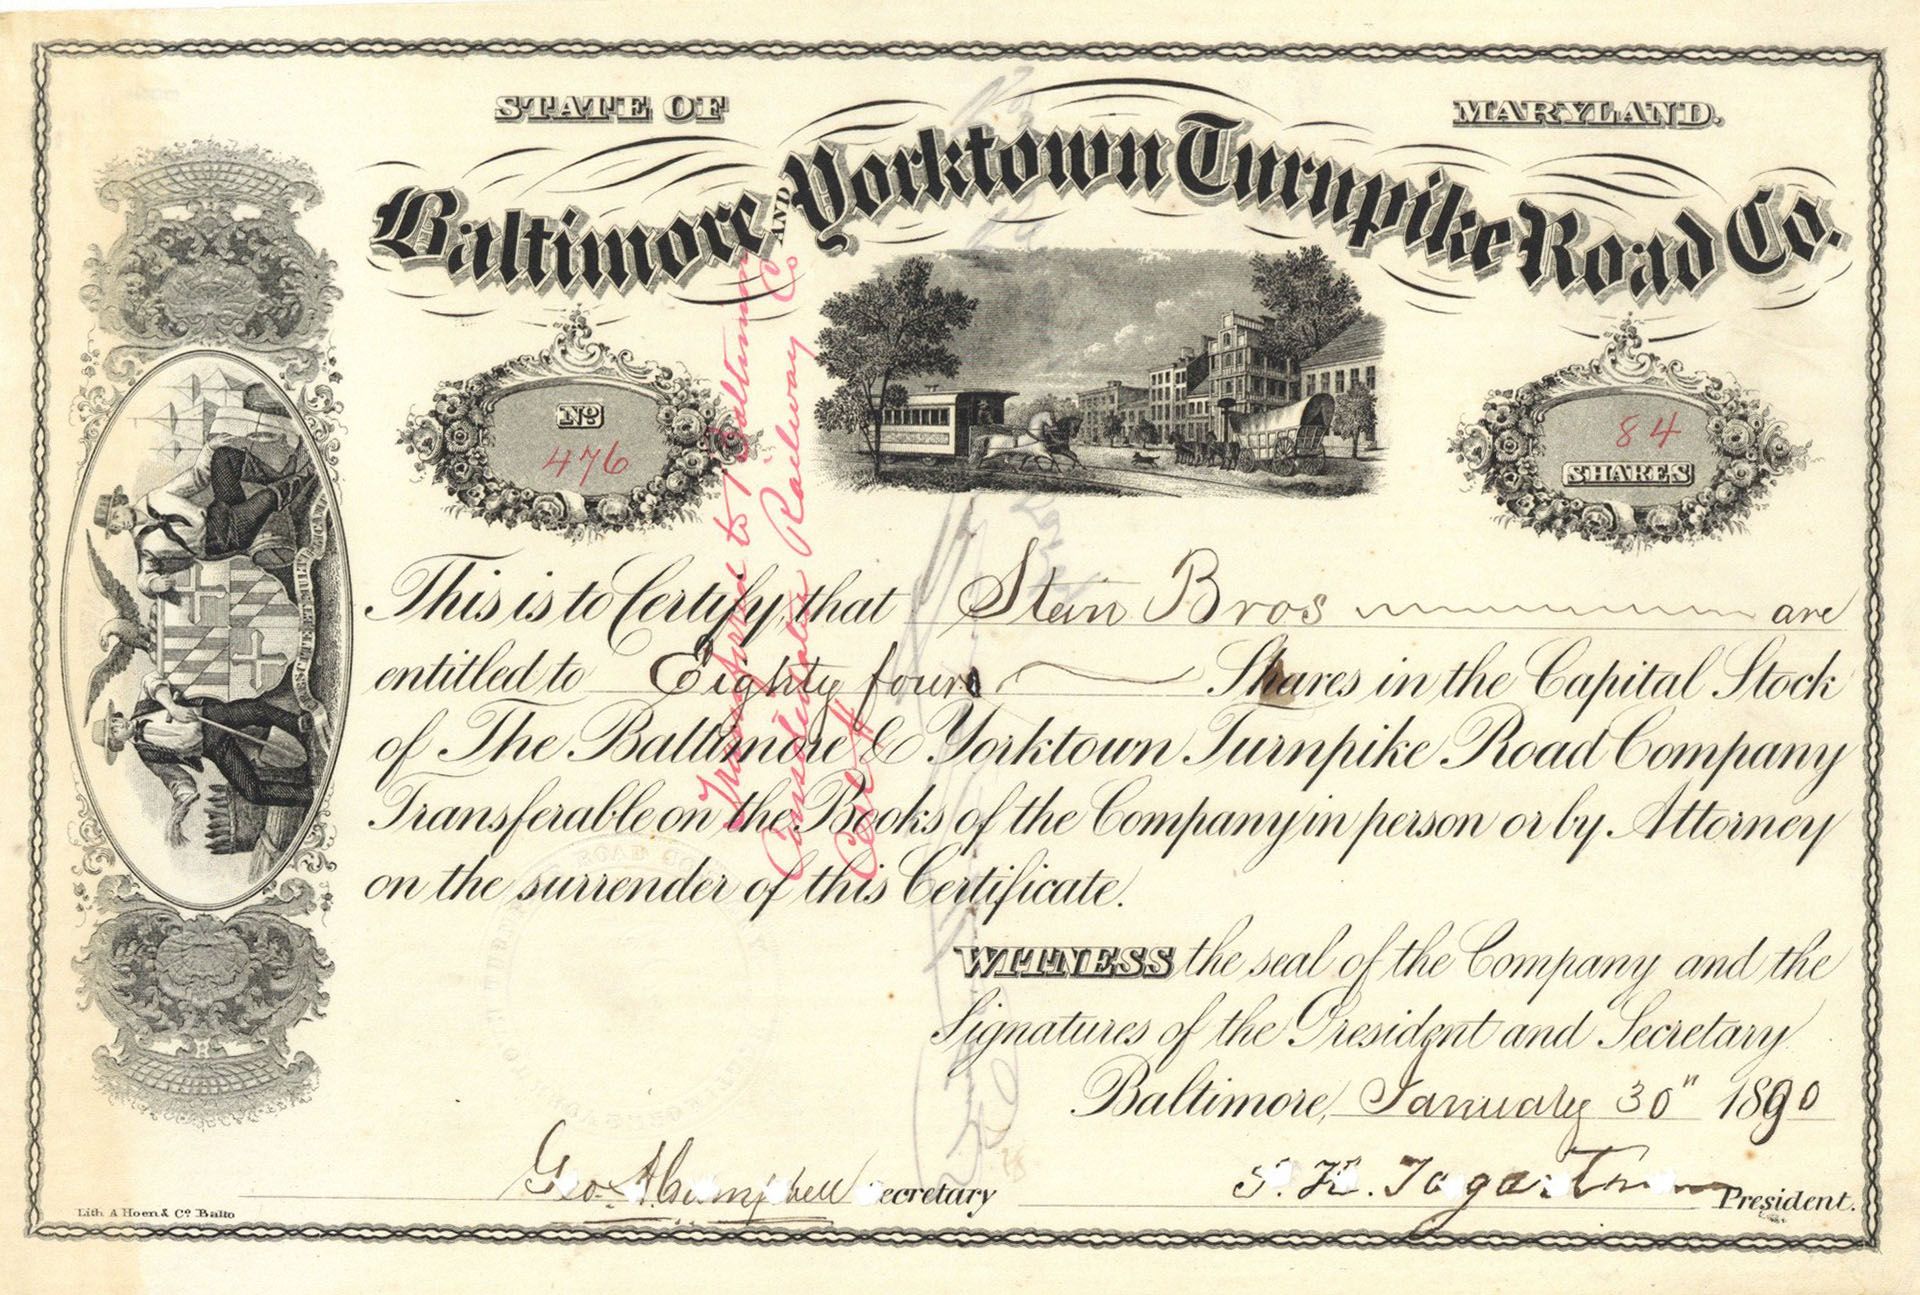 STATE OF MARYLAND.
Baltimore AND Yorktown Turnpike Road Co.
No
476
84
SHARES
This is to Certify, that Stein Bros are
entitled to Eighty four Shares in the Capital Stock
of The Baltimore & Yorktown Turnpike Road Company
Transferable on the Books of the Company in person or by Attorney
on the surrender of this Certificate.
WITNESS the seal of the Company and the
Signatures of the President and Secretary
Baltimore, January 30" 1890
Geo. A. Campbell Secretary
President.
Lith. A Hoen & Co Balto
Transferred to Baltimore
Consolidated Railway Co